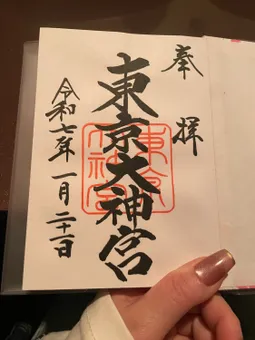 奉拝
東京大神宮
令和七年一月二十一日
東京大神宮